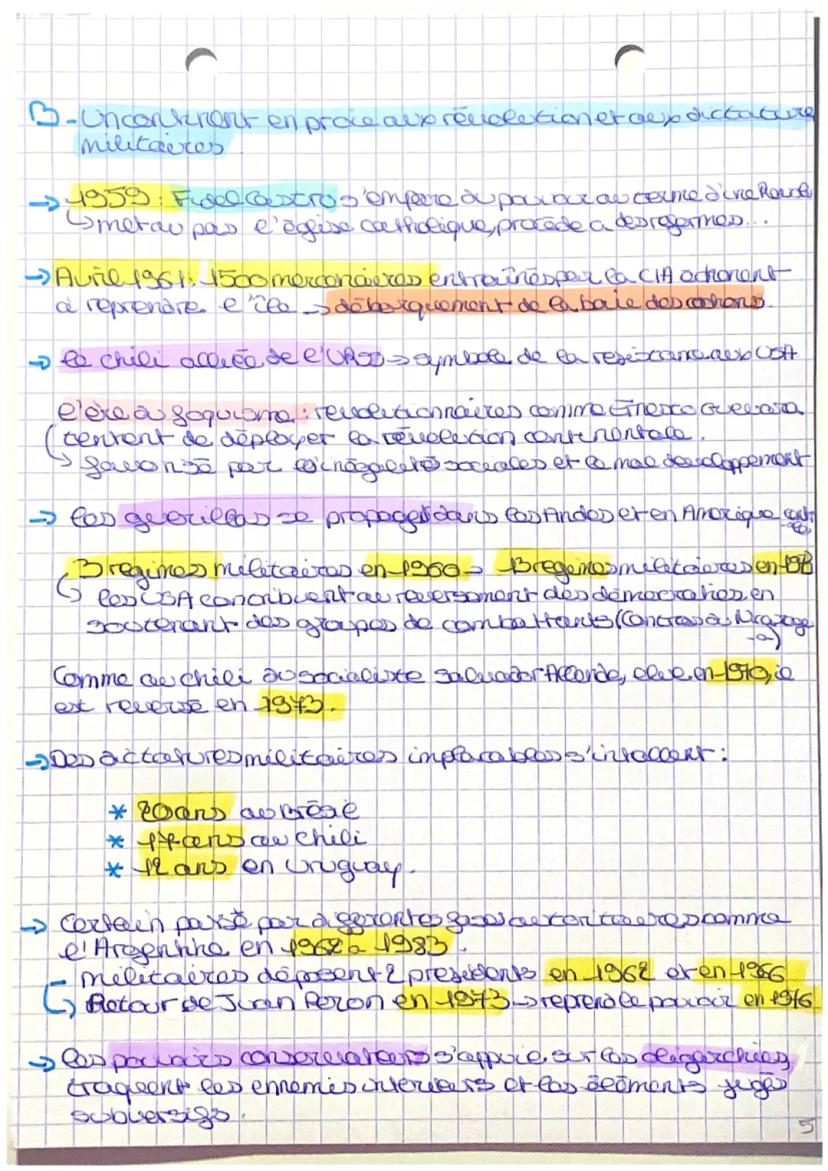 B - Un continent en proie aux révolution et aux dictature
militaires.
→ 1959 : Fidel Castro s'empare du pouvoir au terme d'une
↳ met au pas l'église catholique, procède a des reformes...
→ Avril 1961 : 1500 mercenaires entraînés par la CIA échouent
à reprendre l'île → débarquement de la baie des cochons.
→ le chili alliée de l'URSS → symbole de la résistance aux USA
l'ère du foquisme : revolutionnaires comme Ernesto Guevara
tentent de déployer la révolution continentale.
↳ favorisé par les inégalités sociales et le mal développement
→ les guerillas se propagent dans les Andes et en Amérique
3 regimes militaires en 1960 → 13 regimes militaires en
↳ les USA contribuent au renversement des démocraties en
soutenant des groupes de combattants (Contras du Nicarage
-a)
Comme au chili du socialiste Salvador Allende, élue en 1970, il
est reversé en 1973.
→ Des dictatures militaires implacables s'installent :
* 20 ans au Brésil
* 17 ans au Chili
* 12 ans en Uruguay.
→ Certain passé par différentes phases autoritaires comme
l'Argentine en 1962 à 1983.
militaires déposent 2 presidents en 1962 et en 1966
↳ Retour de Juan Peron en 1973 → reprend le pouvoir en 1976
→ les pouvoirs conservateurs s'appuie sur les oligarchies,
traquent les ennemis intérieurs et les éléments jugés
subversifs.
5